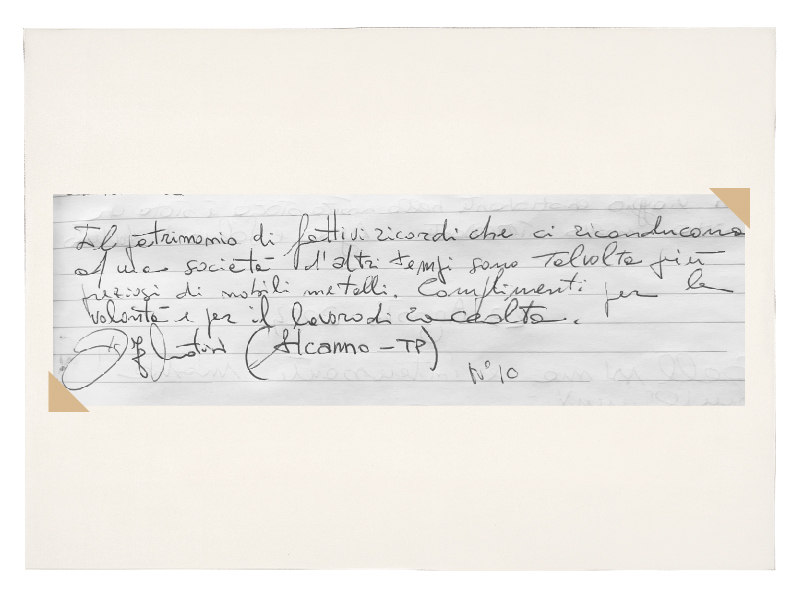 Il patrimonio di fattivi ricordi che ci riconducono
ad una società d'altri tempi sono talvolta più
preziosi di nobili metalli. Complimenti per la
volontà e per il lavoro di raccolta.
(Alcamo - TP)
N° 10